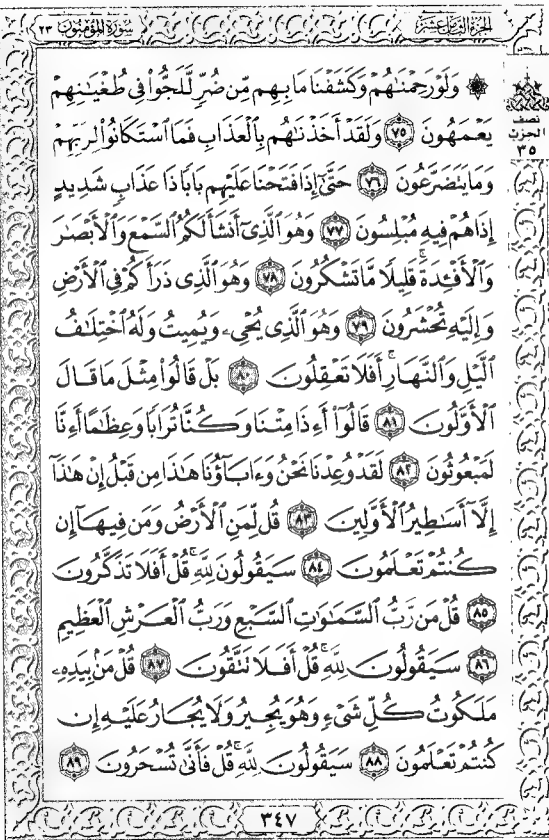 سُورَةُ المُؤْمِنُونَ ٢٣
الجُزْءُ الثَّامِنَ عَشَرَ
۞ وَلَوْ رَحِمْنَٰهُمْ وَكَشَفْنَا مَا بِهِم مِّن ضُرٍّ لَّلَجُّوا۟ فِى طُغْيَٰنِهِمْ
يَعْمَهُونَ ٧٥ وَلَقَدْ أَخَذْنَٰهُم بِٱلْعَذَابِ فَمَا ٱسْتَكَانُوا۟ لِرَبِّهِمْ
وَمَا يَتَضَرَّعُونَ ٧٦ حَتَّىٰٓ إِذَا فَتَحْنَا عَلَيْهِم بَابًا ذَا عَذَابٍ شَدِيدٍ
إِذَا هُمْ فِيهِ مُبْلِسُونَ ٧٧ وَهُوَ ٱلَّذِىٓ أَنشَأَ لَكُمُ ٱلسَّمْعَ وَٱلْأَبْصَٰرَ
وَٱلْأَفْـِٔدَةَ ۚ قَلِيلًا مَّا تَشْكُرُونَ ٧٨ وَهُوَ ٱلَّذِى ذَرَأَكُمْ فِى ٱلْأَرْضِ
وَإِلَيْهِ تُحْشَرُونَ ٧٩ وَهُوَ ٱلَّذِى يُحْىِۦ وَيُمِيتُ وَلَهُ ٱخْتِلَٰفُ
ٱلَّيْلِ وَٱلنَّهَارِ ۚ أَفَلَا تَعْقِلُونَ ٨٠ بَلْ قَالُوا۟ مِثْلَ مَا قَالَ
ٱلْأَوَّلُونَ ٨١ قَالُوٓا۟ أَءِذَا مِتْنَا وَكُنَّا تُرَابًا وَعِظَٰمًا أَءِنَّا
لَمَبْعُوثُونَ ٨٢ لَقَدْ وُعِدْنَا نَحْنُ وَءَابَآؤُنَا هَٰذَا مِن قَبْلُ إِنْ هَٰذَآ
إِلَّآ أَسَٰطِيرُ ٱلْأَوَّلِينَ ٨٣ قُل لِّمَنِ ٱلْأَرْضُ وَمَن فِيهَآ إِن
كُنتُمْ تَعْلَمُونَ ٨٤ سَيَقُولُونَ لِلَّهِ ۚ قُلْ أَفَلَا تَذَكَّرُونَ
٨٥ قُلْ مَن رَّبُّ ٱلسَّمَٰوَٰتِ ٱلسَّبْعِ وَرَبُّ ٱلْعَرْشِ ٱلْعَظِيمِ
٨٦ سَيَقُولُونَ لِلَّهِ ۚ قُلْ أَفَلَا تَتَّقُونَ ٨٧ قُلْ مَنۢ بِيَدِهِۦ
مَلَكُوتُ كُلِّ شَىْءٍ وَهُوَ يُجِيرُ وَلَا يُجَارُ عَلَيْهِ إِن
كُنتُمْ تَعْلَمُونَ ٨٨ سَيَقُولُونَ لِلَّهِ ۚ قُلْ فَأَنَّىٰ تُسْحَرُونَ ٨٩
نصف
الحزب
٣٥
٣٤٧